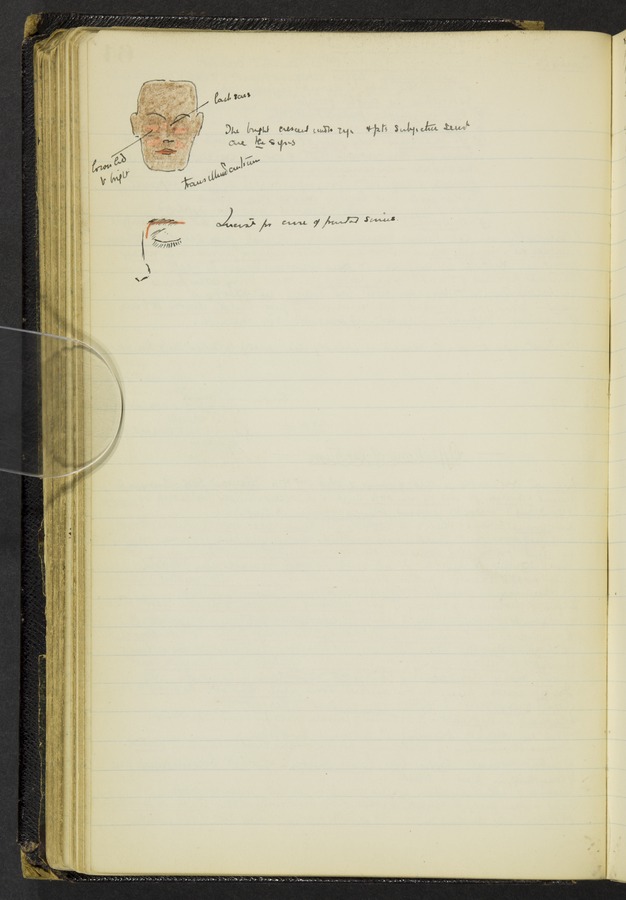 The bright crescent under eye & pts subjective sensn
are the signs
lower lid
& bright
transillumination
Incisn for cure of frontal sinus